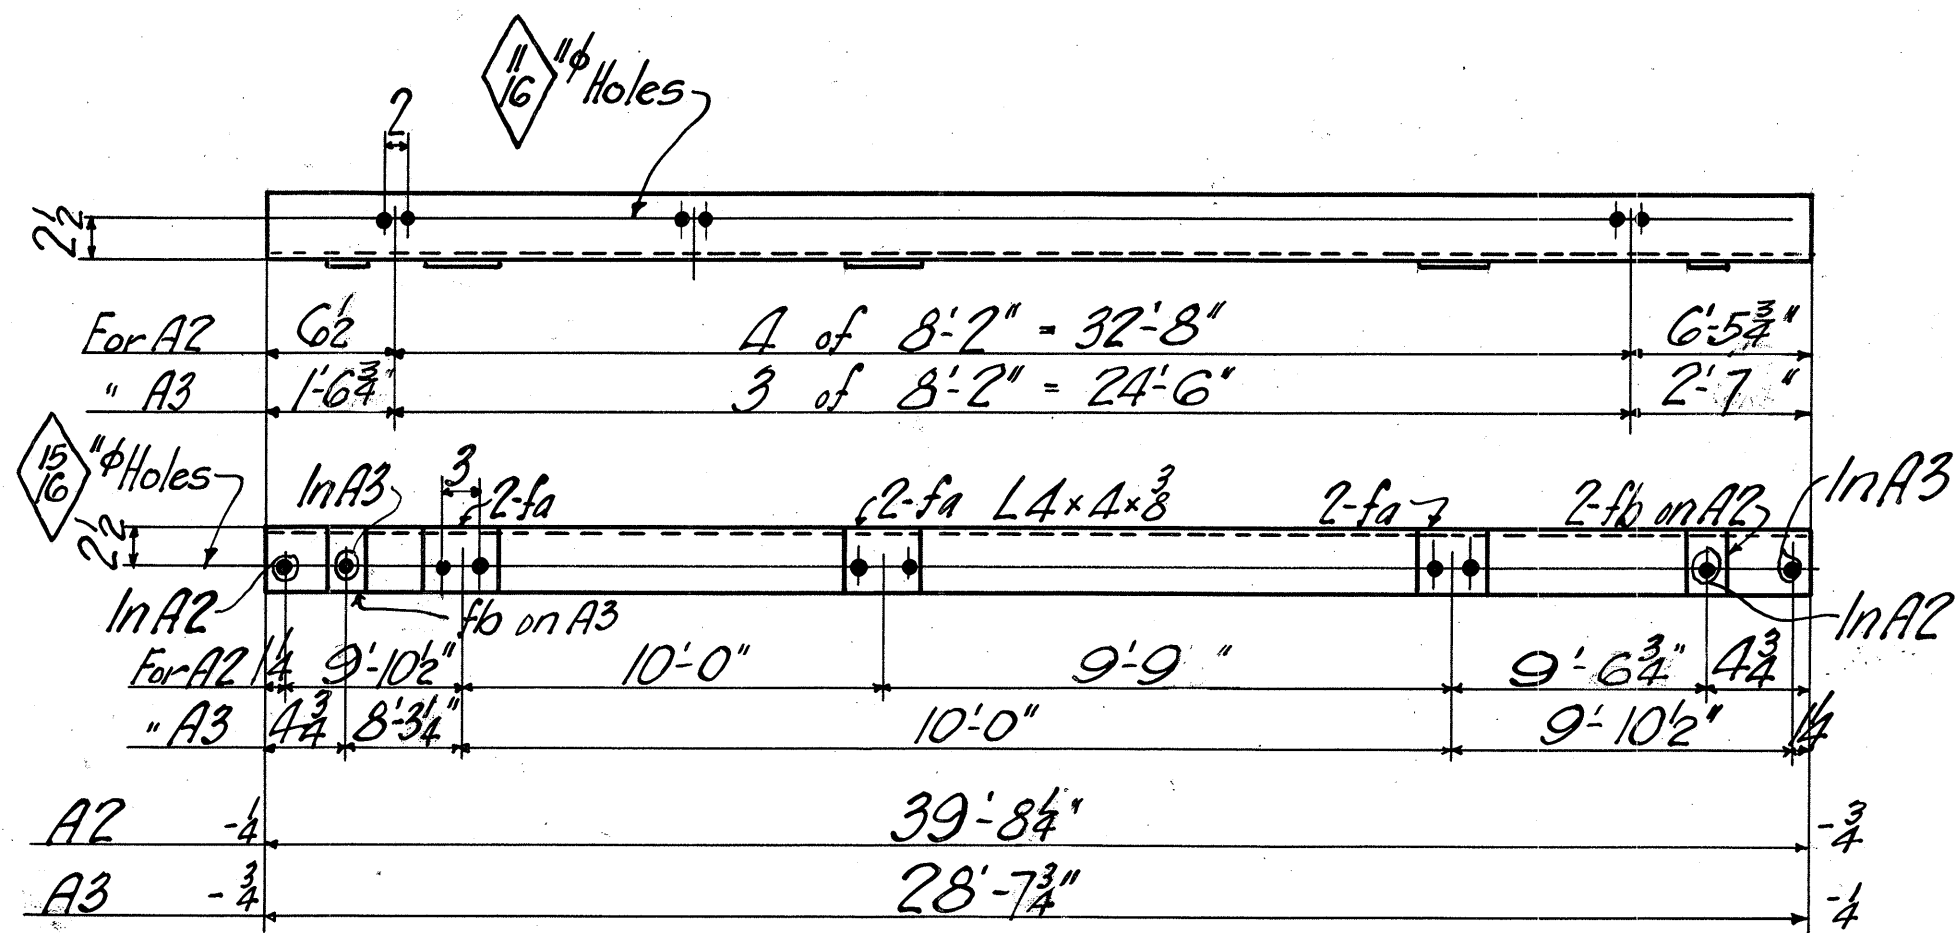 11/16 "φ Holes
2
2 1/2
For A2 6 1/2 4 of 8'-2" = 32'-8" 6'-5 3/4"
" A3 1'-6 3/4" 3 of 8'-2" = 24'-6" 2'-7 "
15/16 "φ Holes
In A3 3 2-fa 2-fa L 4 × 4 × 3/8 2-fa 2-fb on A2 In A3
2 1/2
In A2 fb on A3 In A2
For A2 1 1/4 9'-10 1/2" 10'-0" 9'-9 " 9'-6 3/4" 4 3/4
" A3 4 3/4 8'-3 1/4" 10'-0" 9'-10 1/2" 1 1/4
A2 -1/4 39'-8 1/4" -3/4
A3 -3/4 28'-7 3/4" -1/4